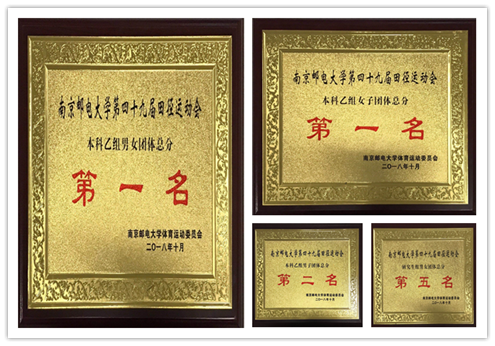 南京邮电大学第四十九届田径运动会
本科乙组男女团体总分
第一名
南京邮电大学体育运动委员会
二〇一八年十月
南京邮电大学第四十九届田径运动会
本科乙组女子团体总分
第一名
南京邮电大学体育运动委员会
二〇一八年十月
南京邮电大学第四十九届田径运动会
本科乙组男子团体总分
第二名
南京邮电大学体育运动委员会
二〇一八年十月
南京邮电大学第四十九届田径运动会
研究生组男女团体总分
第五名
南京邮电大学体育运动委员会
二〇一八年十月